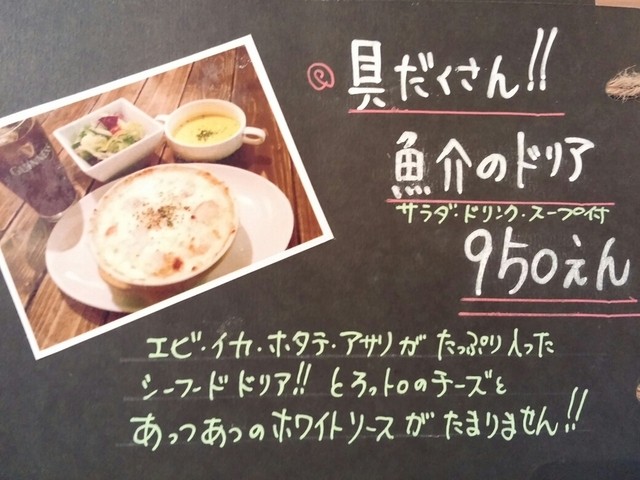 具だくさん!!
魚介のドリア
サラダ・ドリンク・スープ付
950えん
エビ・イカ・ホタテ・アサリが たっぷり入った
シーフードドリア!! とろっトロのチーズと
あっつあつのホワイトソースがたまりません!!
GUINNESS